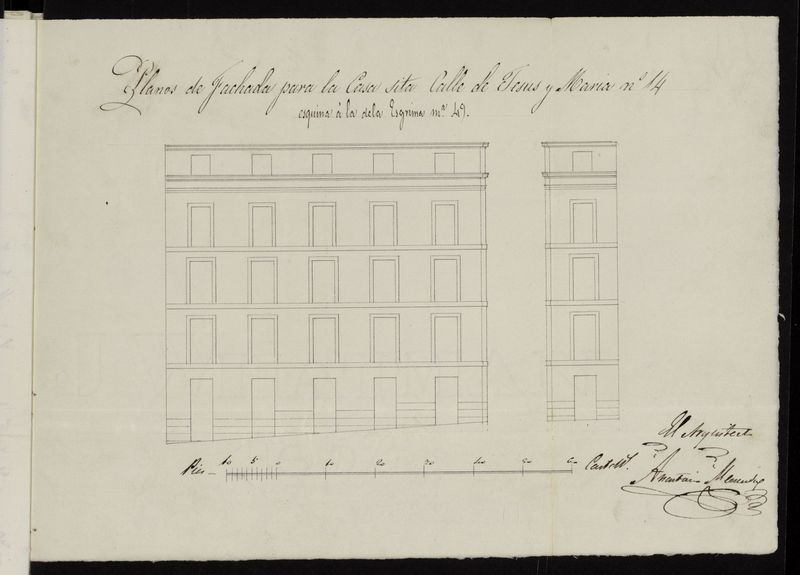 Planos de Fachada para la Casa sita Calle de Jesus y Maria nº 14
esquina á la de la Esgrima nº
Pies 10 5 0 10 20 30 40 50
El Arquitecto
Menendez